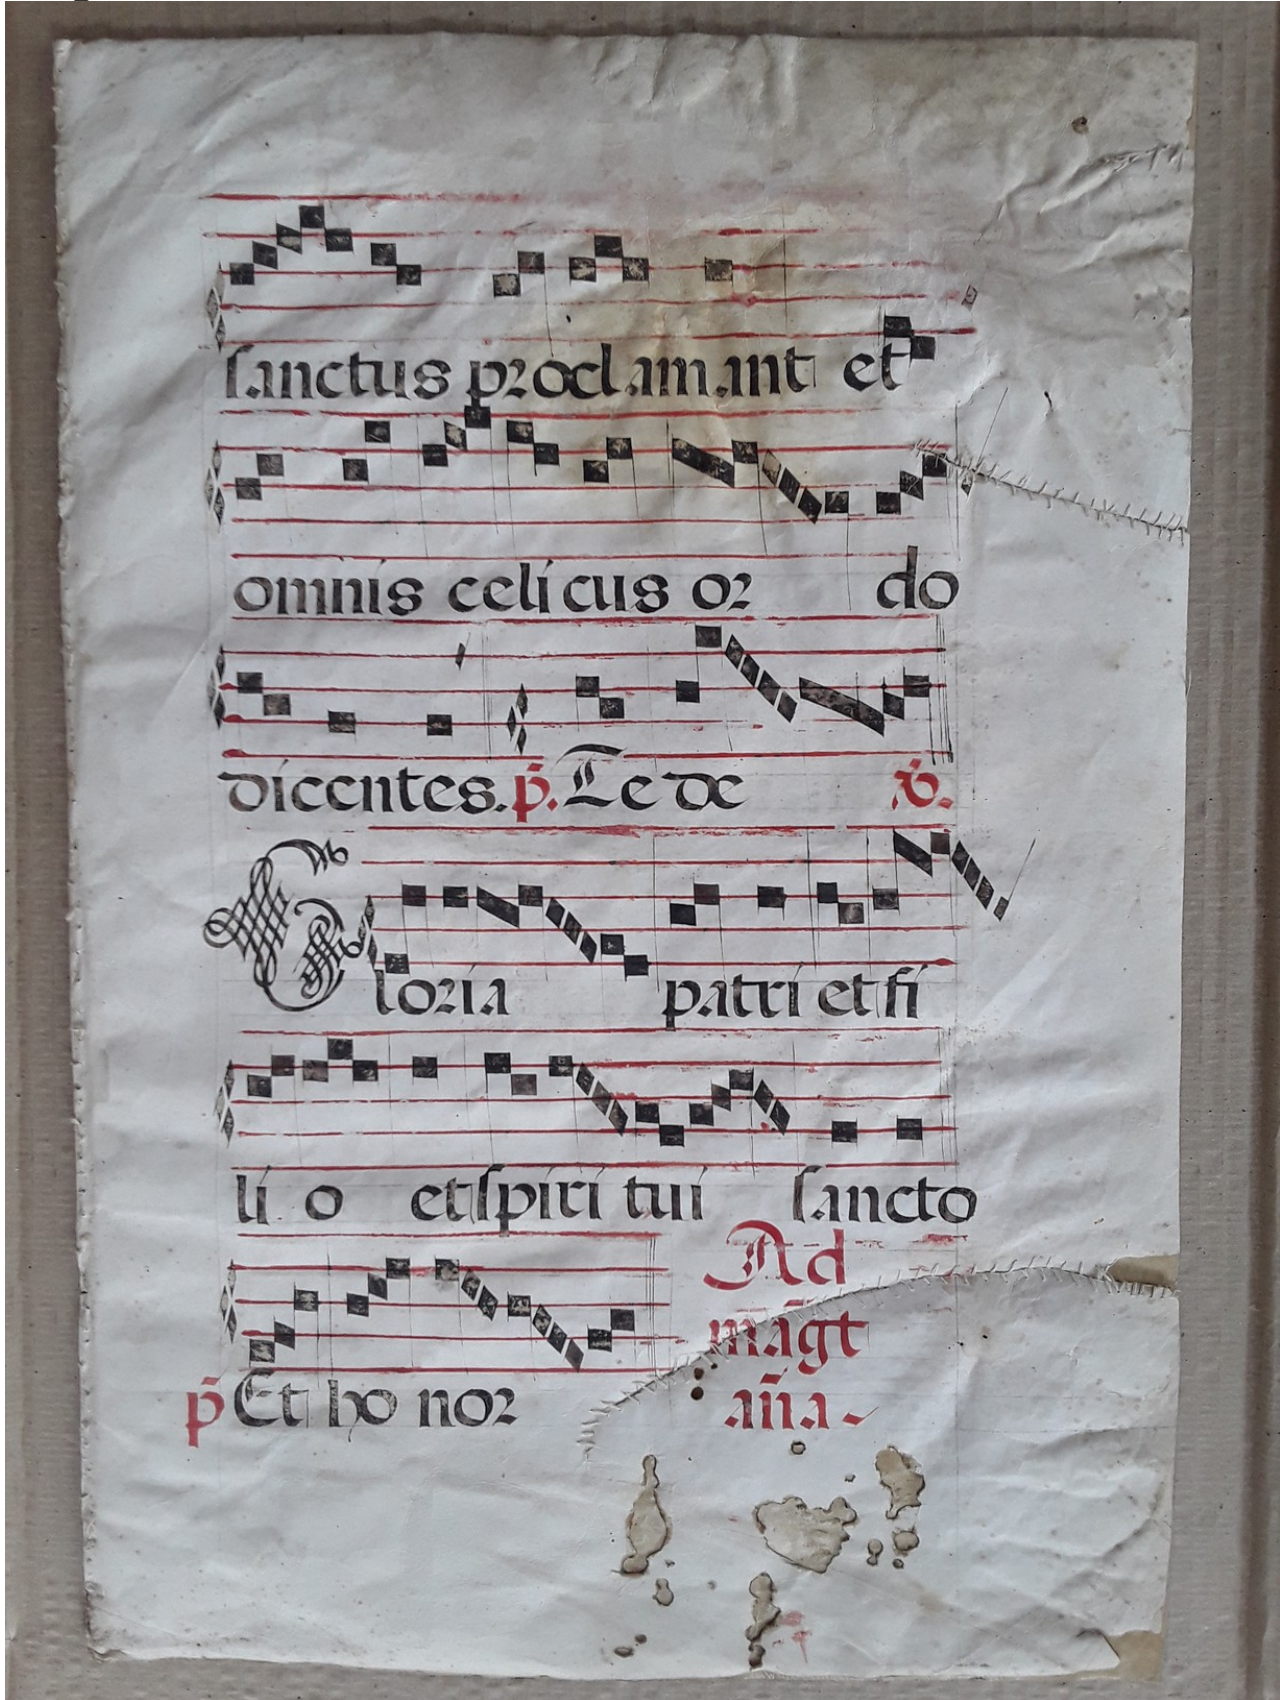 sanctus proclamant et
omnis celicus or do
dicentes. p̄. Te de v̄.
Gloria patri et fi
li o et spiri tui sancto
p̄ Et ho nor
Ad
māgt
añа